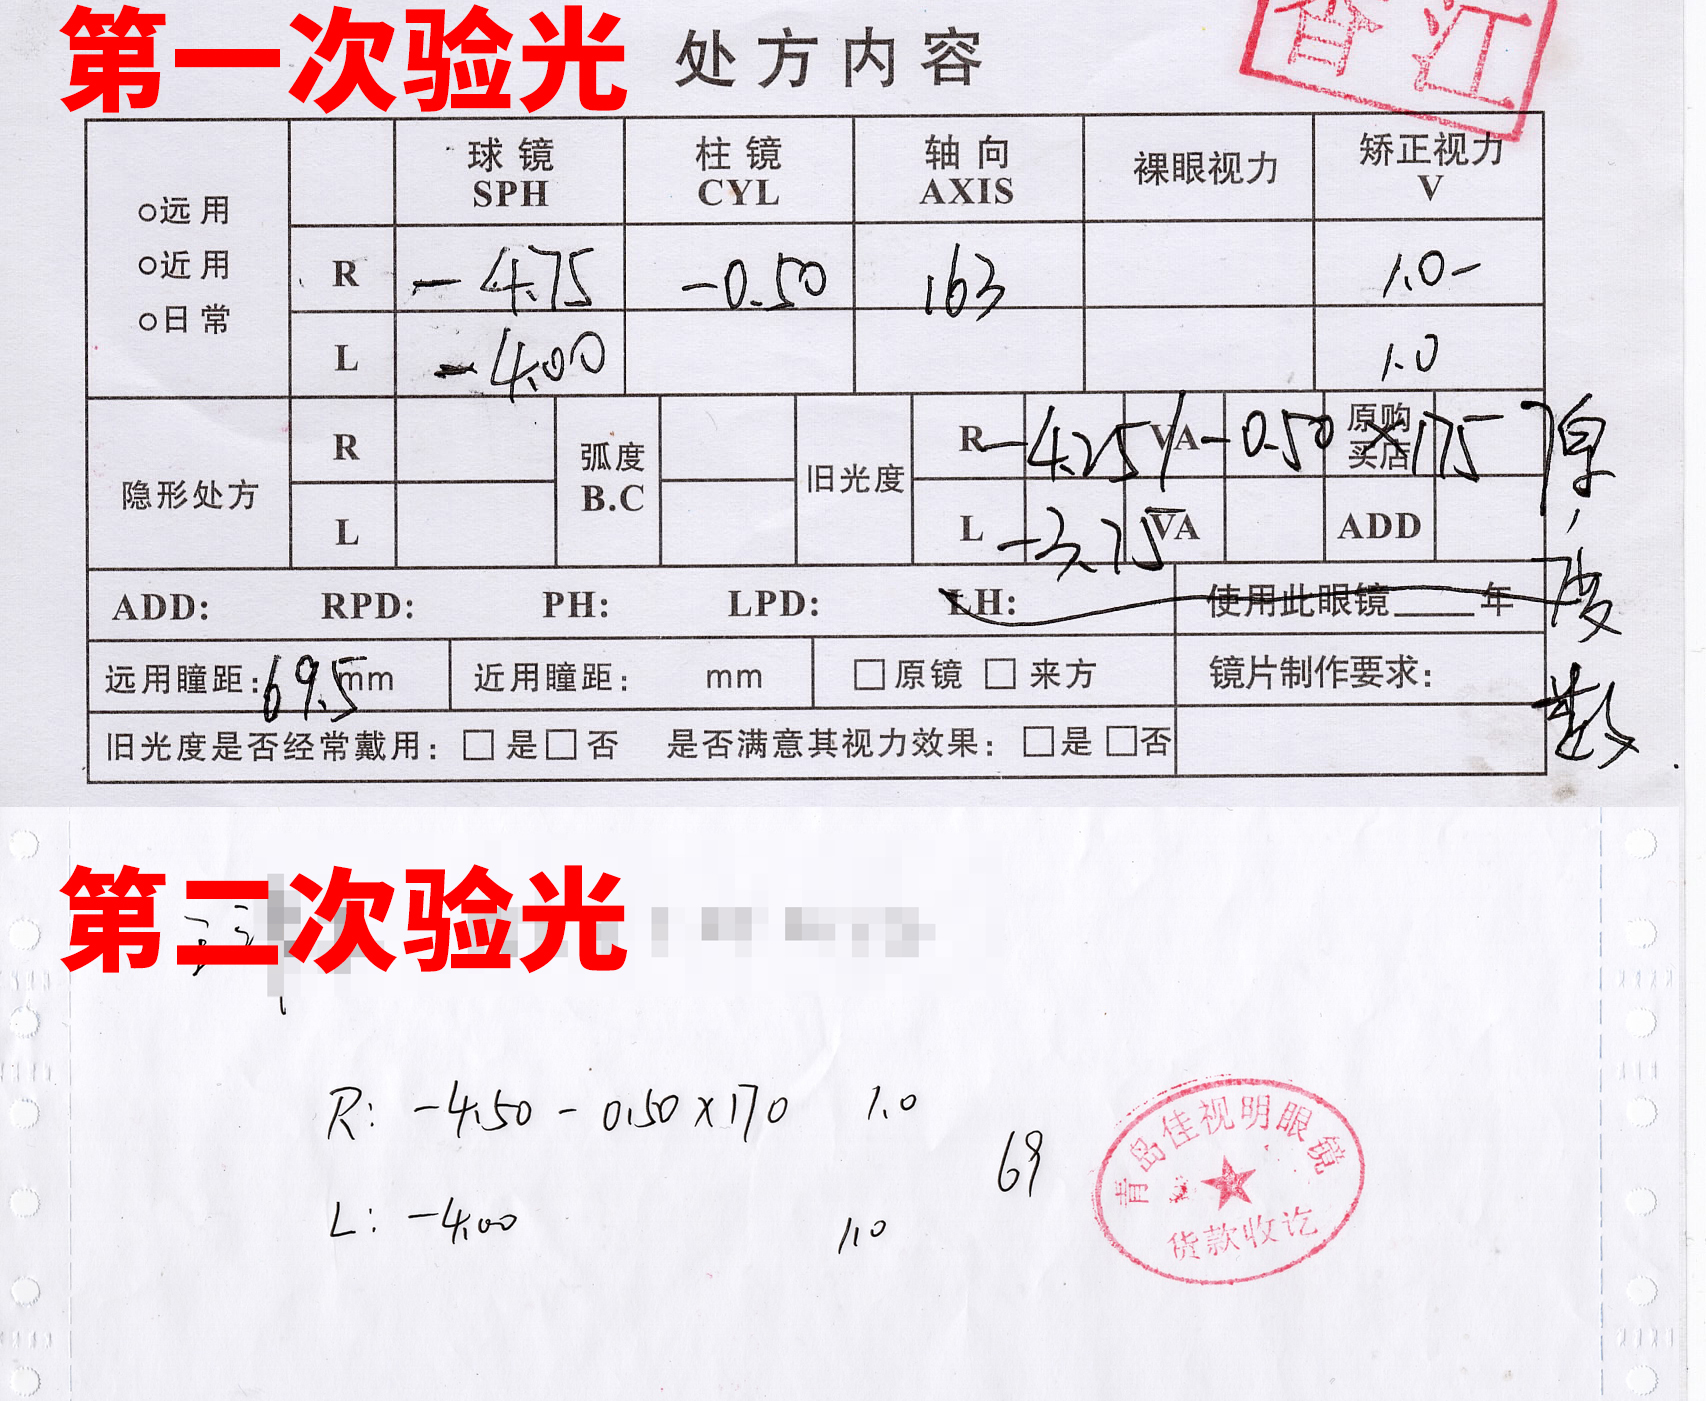 第一次验光 处方内容
香江
球镜 柱镜 轴向 裸眼视力 矫正视力
SPH CYL AXIS V
○远用
○近用
○日常
R -4.75 -0.50 163 1.0-
L -4.00 1.0
隐形处方 R 弧度 旧光度 R -4.25/ VA -0.50×175 原购买店 原度数
L B.C L -3.75 VA ADD
ADD: RPD: PH: LPD: LH: 使用此眼镜____年
远用瞳距:69.5mm 近用瞳距: mm □原镜 □来方 镜片制作要求:
旧光度是否经常戴用:□是□否 是否满意其视力效果:□是 □否
第二次验光
R: -4.50 - 0.50×170 1.0
69
L: -4.00 1.0
青岛佳视明眼镜
货款收讫